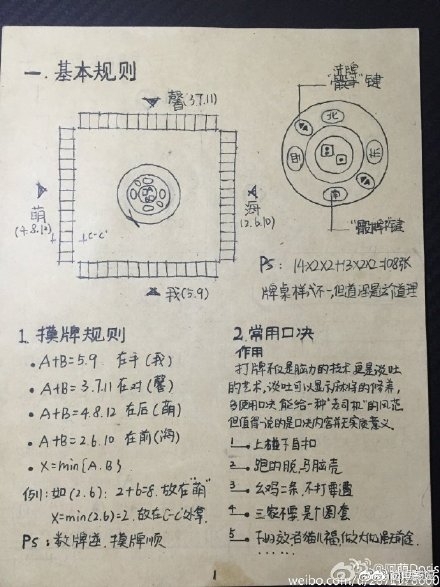 一. 基本规则
馨(3.7.11)
萌
(4.8.12)
C-C'
海
(2.6.10)
我(5.9)
洗牌
"骰子"键
北
西
东
南
PS: 14×2×2+13×2×2=108张
牌桌样式不一,但道理是这个道理
1. 摸牌规则
• A+B=5.9 在手(我)
• A+B=3.7.11 在对(馨)
• A+B=4.8.12 在后(萌)
• A+B=2.6.10 在前(海)
• X=min{A.B}
例:如(2.6): 2+6=8. 放在"萌"
X=min(2.6)=2. 放在C-C'处拿.
PS: 数牌逆.摸牌顺
2. 常用口决
作用
打牌不仅是脑力的技术更是谈吐
的艺术,谈吐可以显示你的修养,
多使用口决,能给一种"老司机"的风范
但值得一说的是口决内容并无实际意义.
1. 上碰下自扣
2. 跑的脱,马脑壳
3. 幺鸡二条,不打要遭
4. 三家不要,是个圈套
5.
......
1
weibo.com/u/2871478660